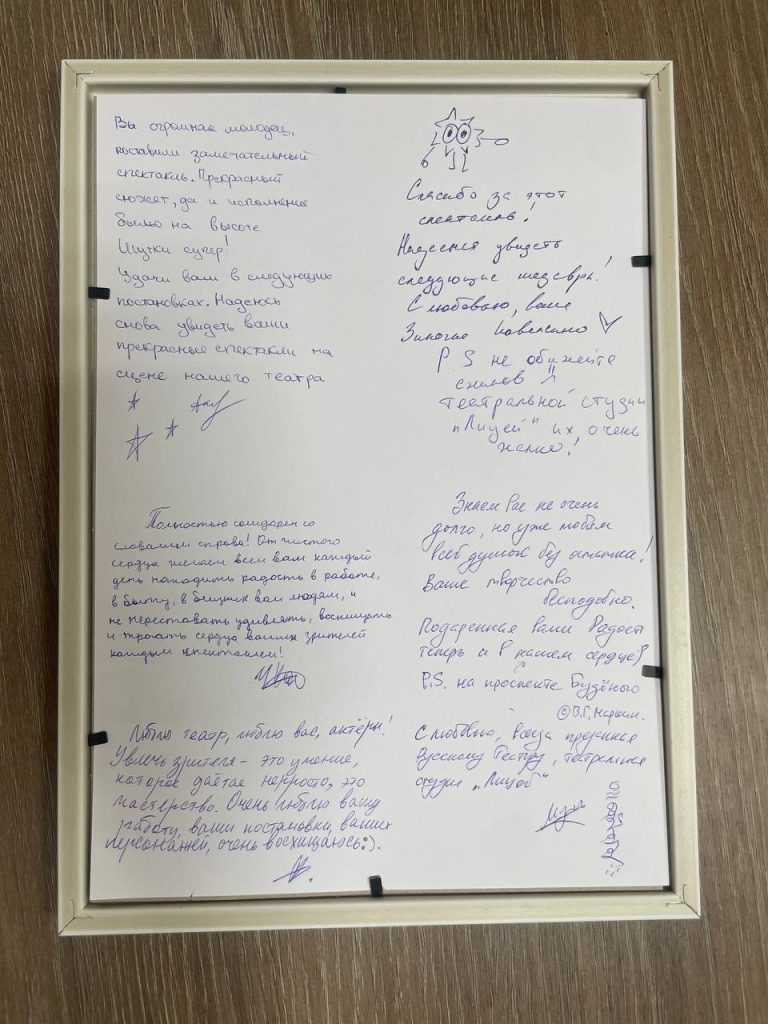 Вы огромная молодец,
поставили замечательный
спектакль. Прекрасный
сюжет, да и исполнение
было на высоте
Шутки супер!
Удачи вам в следующих
постановках. Надеюсь
снова увидеть ваши
прекрасные спектакли на
сцене нашего театра
Спасибо за этот
спектакль!
Надеемся увидеть
следующие шедевры!
С любовью, ваше
P S не обижайте
театральной студии
"Лицей" их, очень
жалко!
Полностью солидарен со
словами справа! От чистого
сердца желаем всем вам каждый
день находить радость в работе,
в быту, в близких вам людям, и
не переставать удивлять, восхищать
и трогать сердца ваших зрителей
каждым спектаклем!
Знаем Вас не очень
долго, но уже любим
всей душой без остатка!
Ваше творчество
бесподобно.
Подаренная вами Радость
теперь и в нашем сердце)
P.S. на проспекте Будёного
©В.Г.
Люблю театр, люблю вас, актёры!
Увлечь зрителя - это умение,
которое даётся непросто, это
мастерство. Очень люблю вашу
работу, ваши постановки, ваших
персонажей, очень восхищаюсь:).
С любовью, всегда преданная
Русскому Театру, театральная
студия "Лицей"